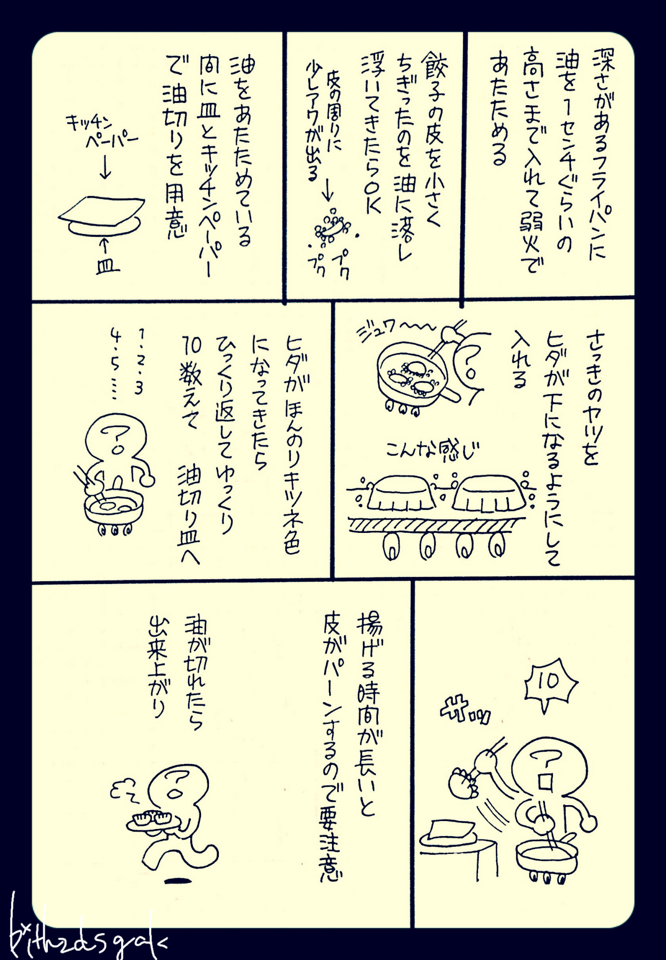 深さがあるフライパンに
油を1センチぐらいの
高さまで入れて弱火で
あたためる
餃子の皮を小さく
ちぎったのを油に落し
浮いてきたらOK
皮の周りに
少しアワが出る
プク
プク
油をあたためている
間に皿とキッチンペーパー
で油切りを用意
キッチン
ペーパー
皿
さっきのヤツを
ヒダが下になるようにして
入れる
ジュワ〜〜〜
こんな感じ
ヒダがほんのりキツネ色
になってきたら
ひっくり返してゆっくり
10数えて 油切り皿へ
1.2.3
4.5……
10
サッ
揚げる時間が長いと
皮がパーンするので要注意
油が切れたら
出来上がり